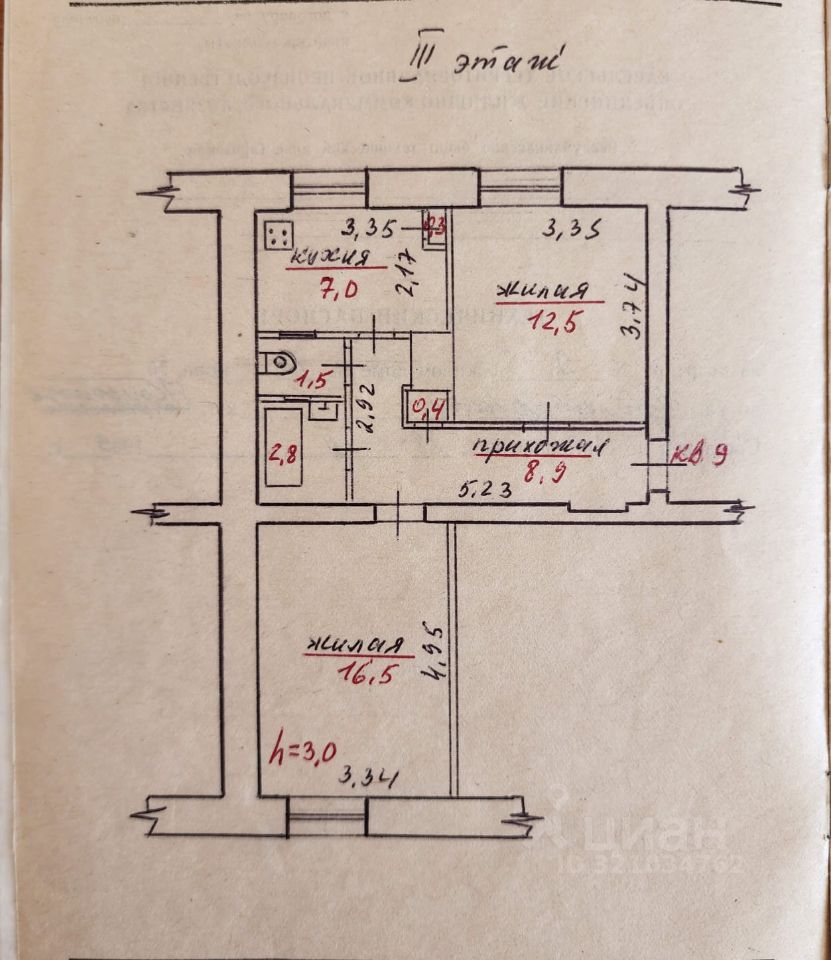 III этаж
3,35
0,3
3,35
кухня
7,0
2,17
жилая
12,5
3,74
1,5
2,92
0,4
2,8
прихожая
8,9
кв 9
5,23
жилая
16,5
4,95
h=3,0
3,34
циан
ID 321034762